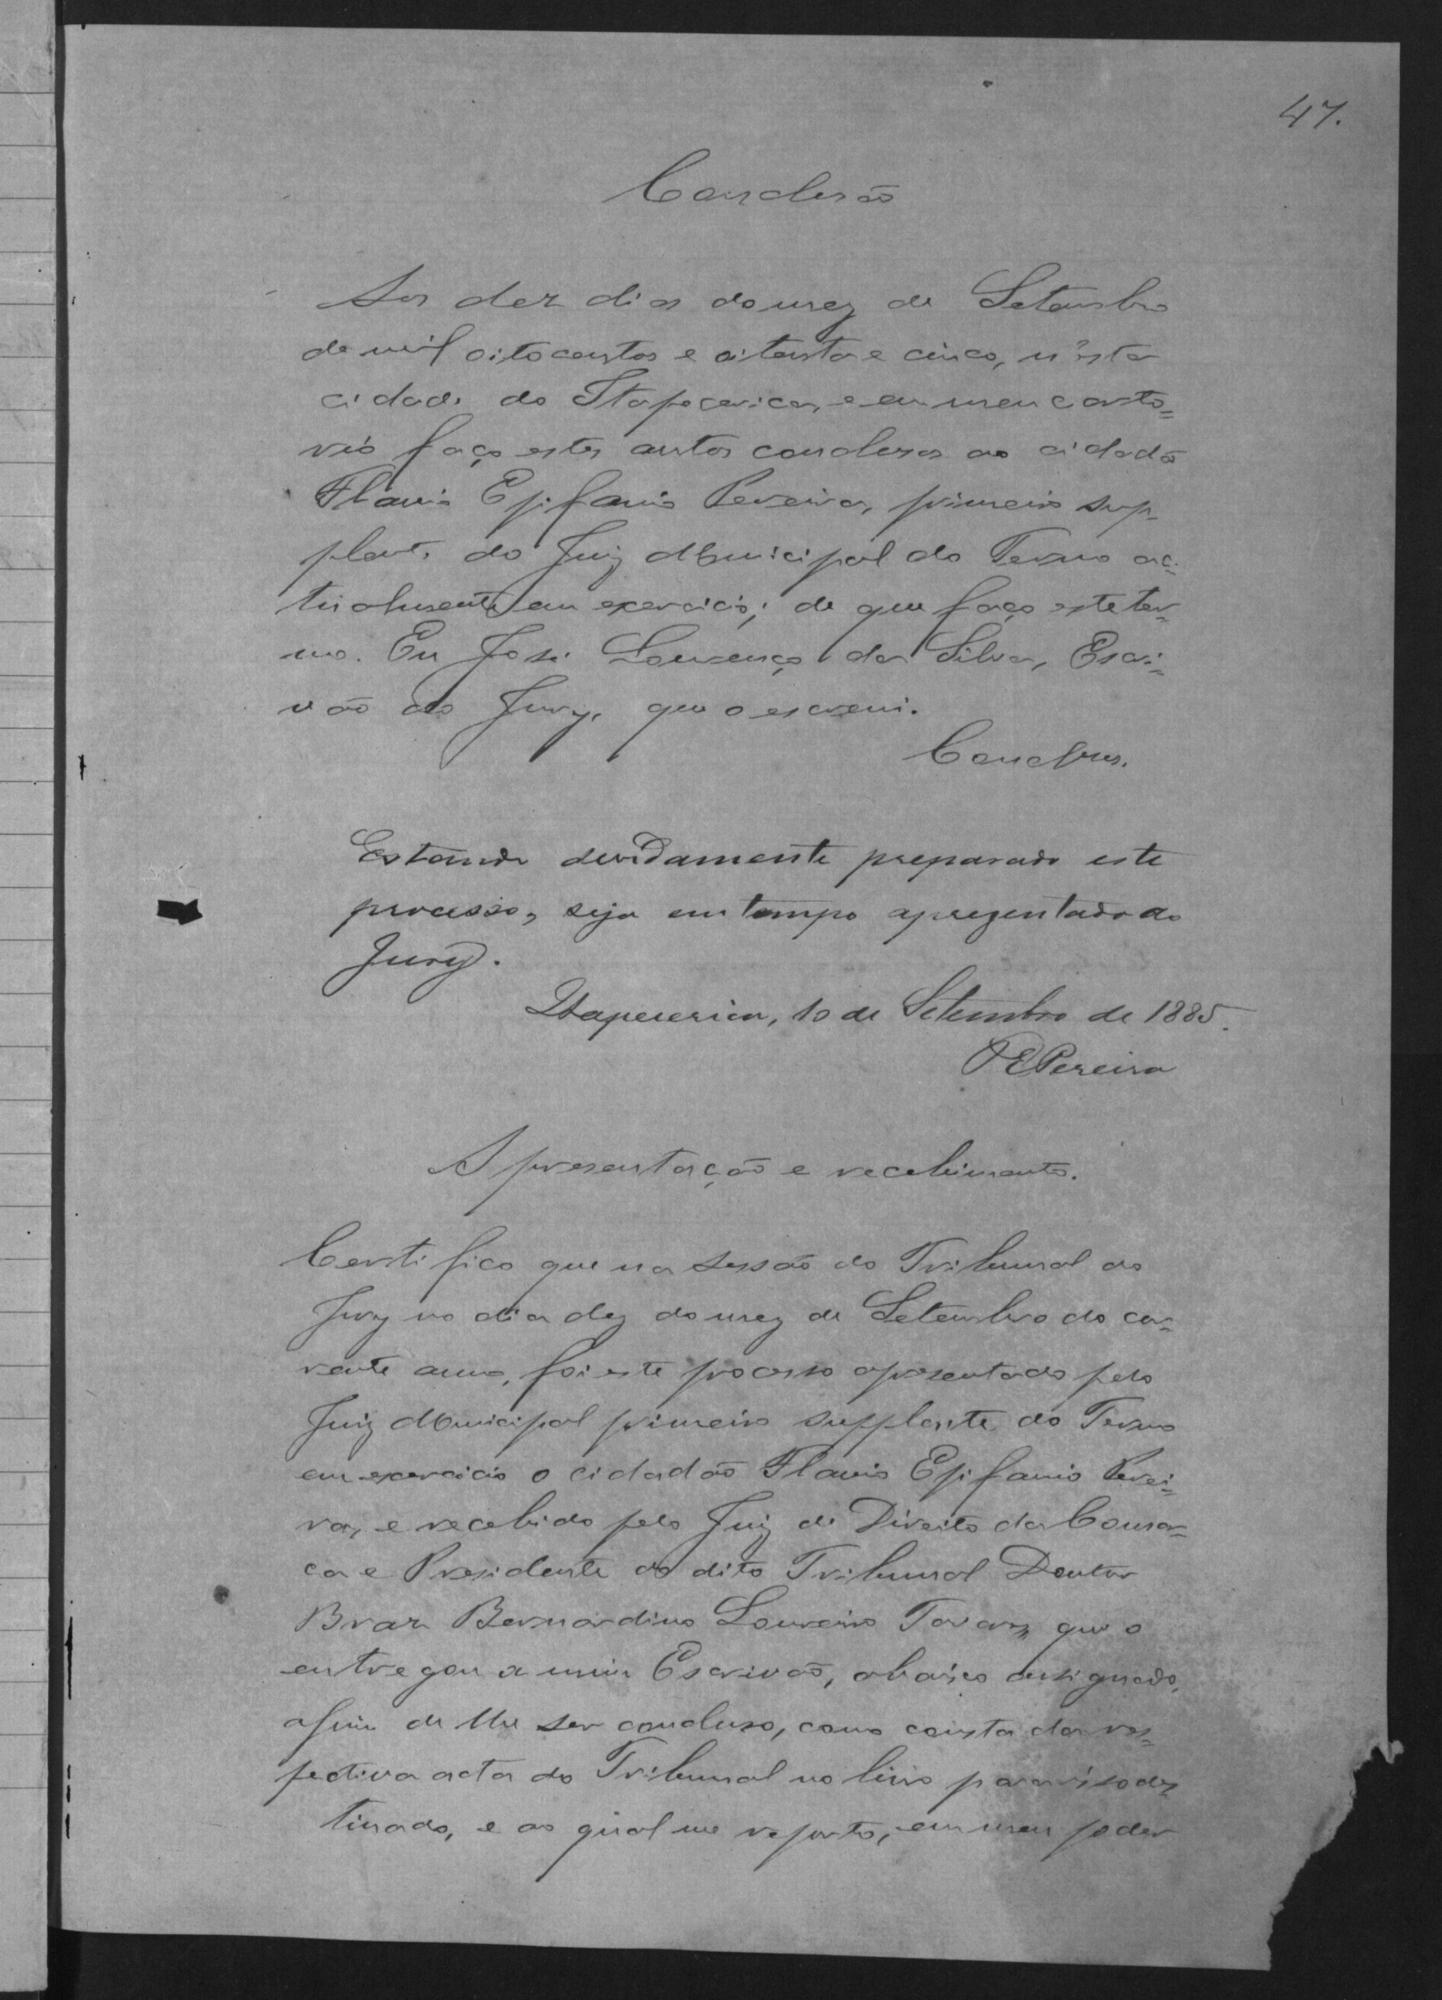 47.
Conclusão
Aos dez dias do mez de Setembro
de mil oitocentos e oitenta e cinco, n'esta
cidade do Itapecerica, e em meu carto=
rio faço estes autos conclusos ao cidadão
Flavio Epifanio Pereira, primeiro sup-
plente do Juiz Municipal do Termo ac-
tualmente em exercicio; de que faço este ter-
mo. Eu José Lourenço da Silva, Escri-
vão do Jury, que o escrevi.
Conclusos.
Estando devidamente preparado este
processo, seja em tempo aprezentado ao
Jury.
Itapecerica, 10 de Setembro de 1885.
FEPereira
Apresentação e recebimento.
Certifico que na sessão do Tribunal do
Jury no dia dez do mez de Setembro do cor-
rente anno, foi este processo apresentado pelo
Juiz Municipal primeiro supplente do Termo
em exercicio o cidadão Flavio Epifanio Perei=
ra, e recebido pelo Juiz de Direito da Comar-
ca e Presidente do dito Tribunal Doutor
Braz Bernardino Loureiro Tavares, que o
entregou a mim Escrivão, abaixo assignado,
afim de lhe ser concluso, como consta da res-
pectiva acta do Tribunal no livro para isso des
tinado, e ao qual me reporto, em meu poder